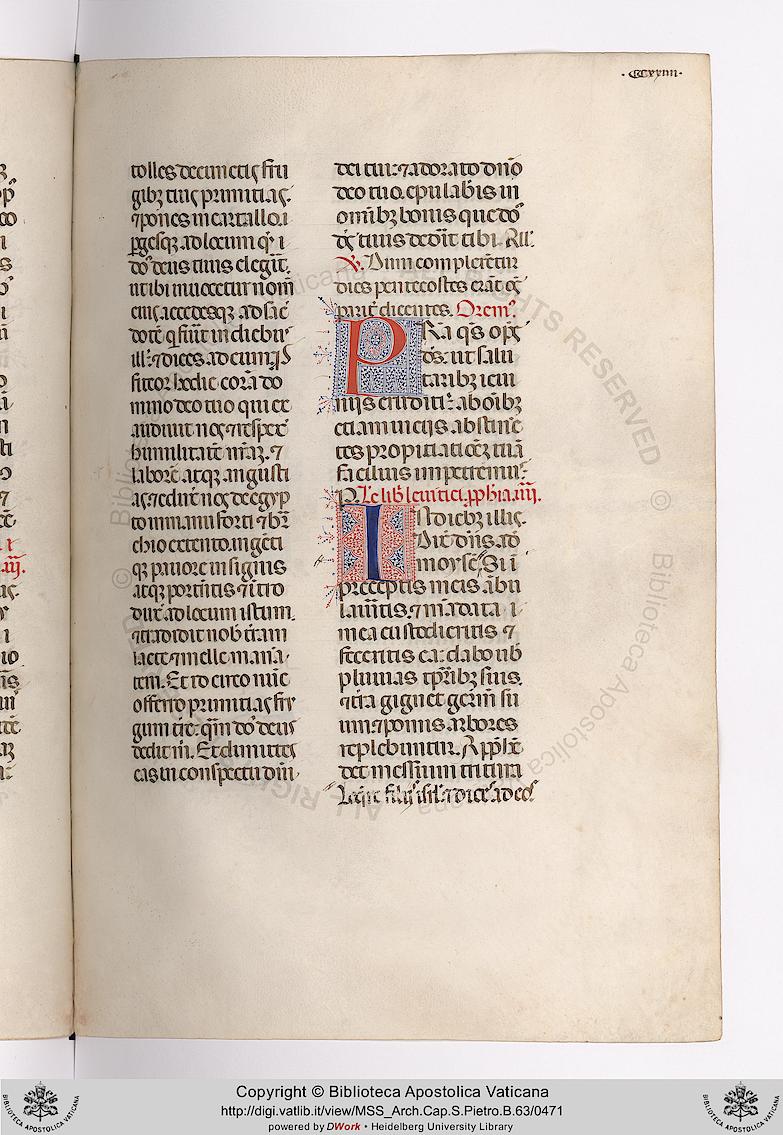 .CCxxiiii.
tolles de cunctis fru
gibꝫ tuis primitias.
⁊ pones in cartallo. i
ꝑgesqꝫ ad locum quē
dn̄s deus tuus elegit.
ut ibi inuocetur nom̄
eius. accedesqꝫ ad sac̄
dotē q̇ fuīt in diebus
illis. ⁊ dices ad eum.
fiteor hodie corā do
mino deo tuo qui ex
audiuit nos ⁊ respexit
humilitatē nr̄aꝫ. ⁊
laborē atqꝫ angusti
as. ⁊ eduxit nos de egyp
to in manu forti ⁊ bra
chio extento. ingēti
qꝫ pauore in signis
atqꝫ portentis ⁊ intro
duxit ad locum istum.
⁊ tradidit nob̄ terram
lacte ⁊ melle manan
tem. Et idcirco nūc
offero primitias fru
gum terre. quam dn̄s deus
dedit m̄. Et dimittes
eas in conspectu dn̄i
dei tui. ⁊ adorato dn̄o
deo tuo. epulab̄is in
omnibꝫ bonis que dn̄s
ds̄ tuus dedit tibi. All̄a.
V. Dum complerētur
dies pentecostes erāt oēs
parit̄ dicentes. Oremus.
PRa qs̄ opc̄
ds̄. ut salu
taribꝫ ieiu
niis eruditi. ab om̄ibꝫ
etiam uiciis abstinē
tes propitiationeꝫ tuā
facilius impetremus.
P. Lc̄ lib̄ leuitici. ꝓph̄ia. iiii.
IN diebꝫ illis.
Dix̄ dn̄s ad
moysē. Si ī
preceptis meis ābu
laueritis. ⁊ mādata
mea custodieritis ⁊
feceritis ea. dabo uob̄
pluuias tꝑribꝫ suis.
⁊ t̄ra gignet germē su
um. ⁊ pomis arbores
replebuntur. Apprehen
det messium tritura
Loquere filiis isrl̄. ⁊ dices ad eos
© Biblioteca Apostolica Vaticana
ALL RIGHTS RESERVED
Copyright © Biblioteca Apostolica Vaticana
http://digi.vatlib.it/view/MSS_Arch.Cap.S.Pietro.B.63/0471
powered by DWork • Heidelberg University Library
BIBLIOTECA APOSTOLICA VATICANA
BIBLIOTECA APOSTOLICA VATICANA